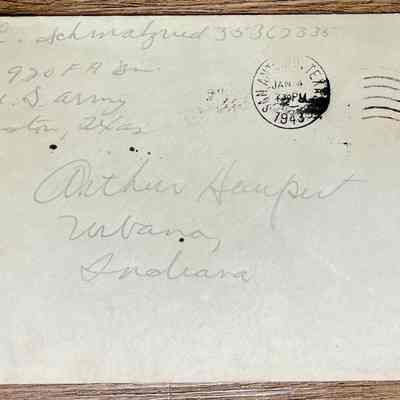 Schmalzried 35362335
920 F A Bn
U.S army
Texas
SAN ANTONIO, TEXAS
JAN 4
PM
1943
Arthur Haupert
Urbana,
Indiana